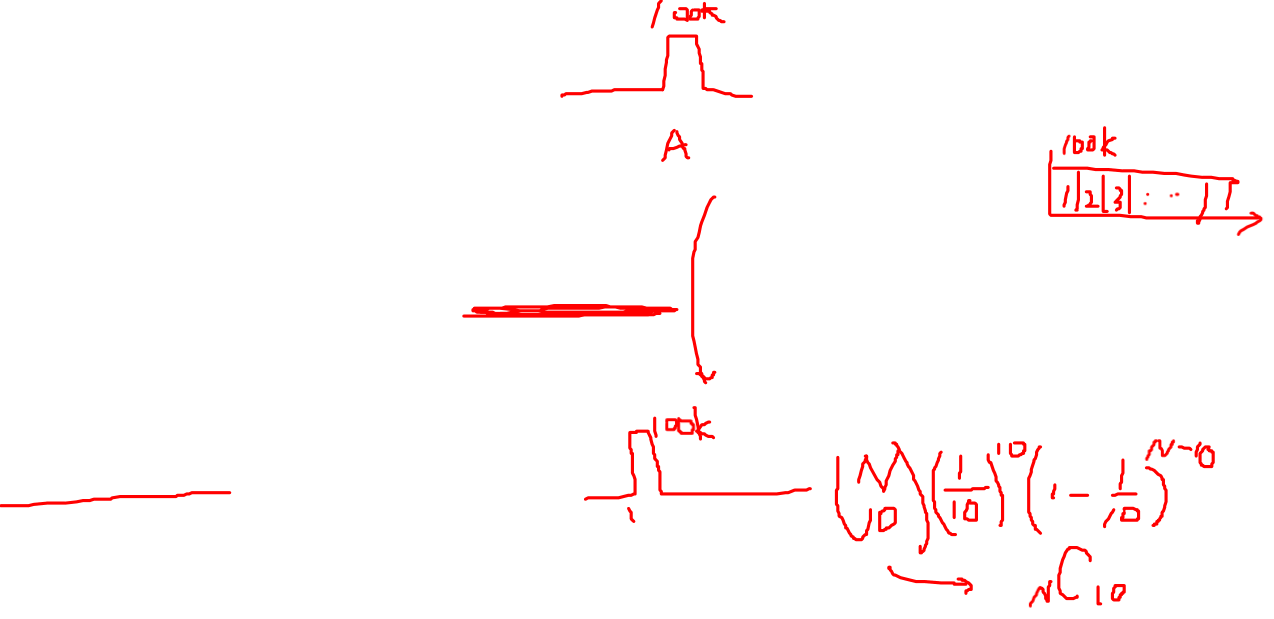 100k
A
100k
1 2 3 : ..
100k
1
(N 10) (1/10)^10 (1 - 1/10)^N-10
NC10